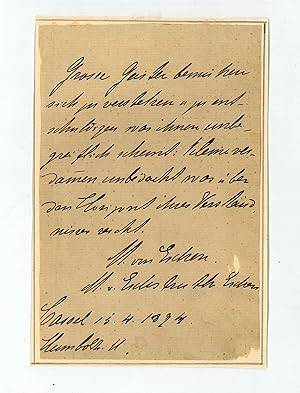 Grosse Geister bemühen
sich zu verstehen u. zu ent-
schuldigen was ihnen unbe-
greiflich scheint: kleine ver-
damen unbedacht, was über
den Horizont ihres Verständ-
nisses reicht.
M. von Eschen.
M. v. Eschstruth Eschen
Cassel 15. 4. 1894
Humboldt